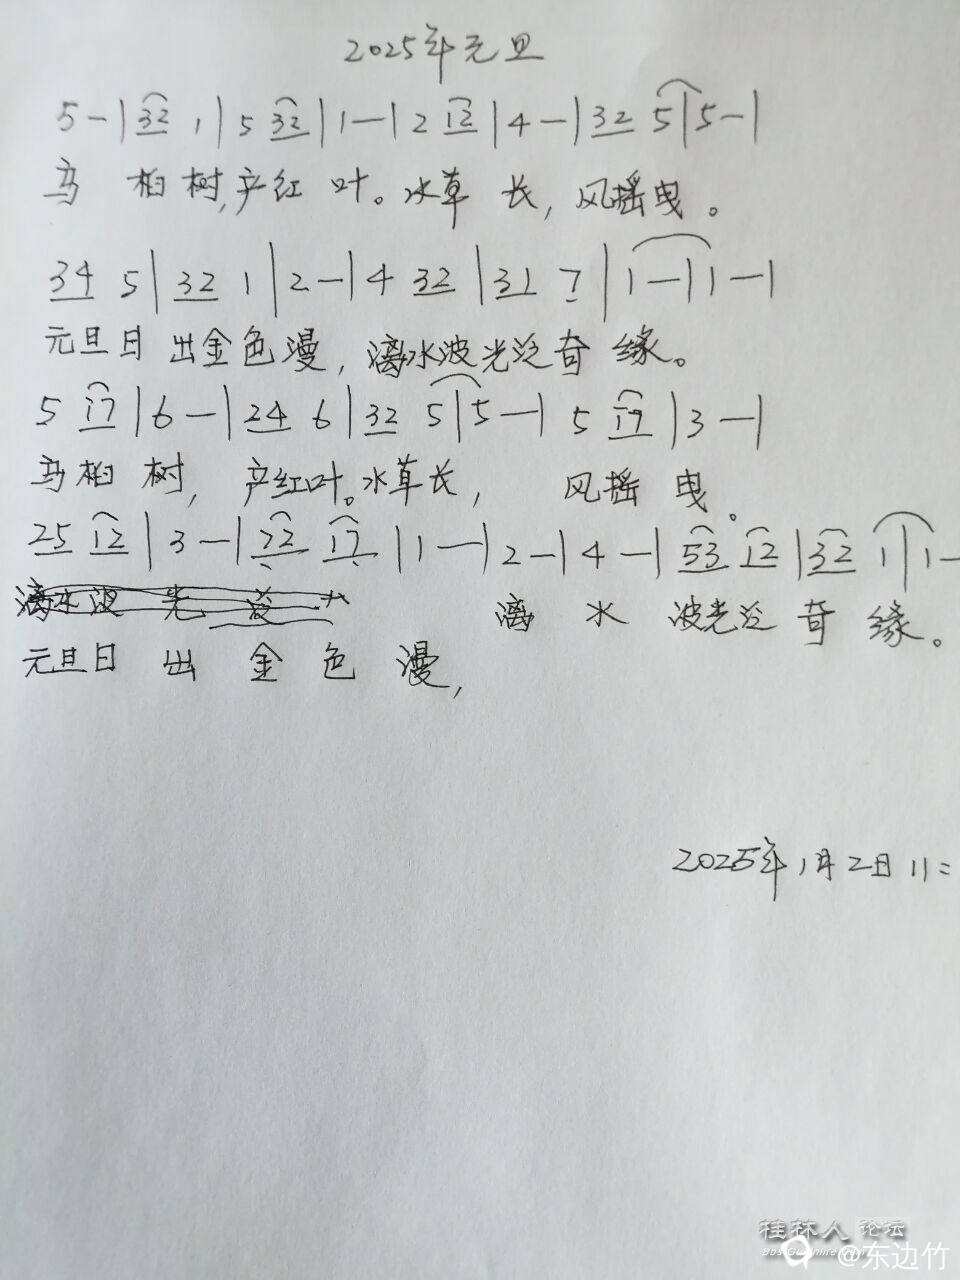 2025年元旦
5 - | 32 1 | 5 32 | 1 — | 2 12 | 4 - | 32 5 | 5 - |
乌 桕树,产红 叶。水草 长,风摇曳。
34 5 | 32 1 | 2 - | 4 32 | 31 7 | 1 - | 1 - |
元旦日 出金色漫,漓水波光泛奇 缘。
5 17 | 6 - | 24 6 | 32 5 | 5 — | 5 17 | 3 - |
乌桕 树, 产红叶。水草长, 风摇 曳。
25 12 | 3 - | 22 17 | 1 — | 2 - | 4 - | 53 12 | 32 1 | 1 -
漓水波 光 泛
漓 水 波光泛 奇 缘。
元旦日 出 金 色 漫,
2025年1月2日 11:
桂林人论坛
@东边竹